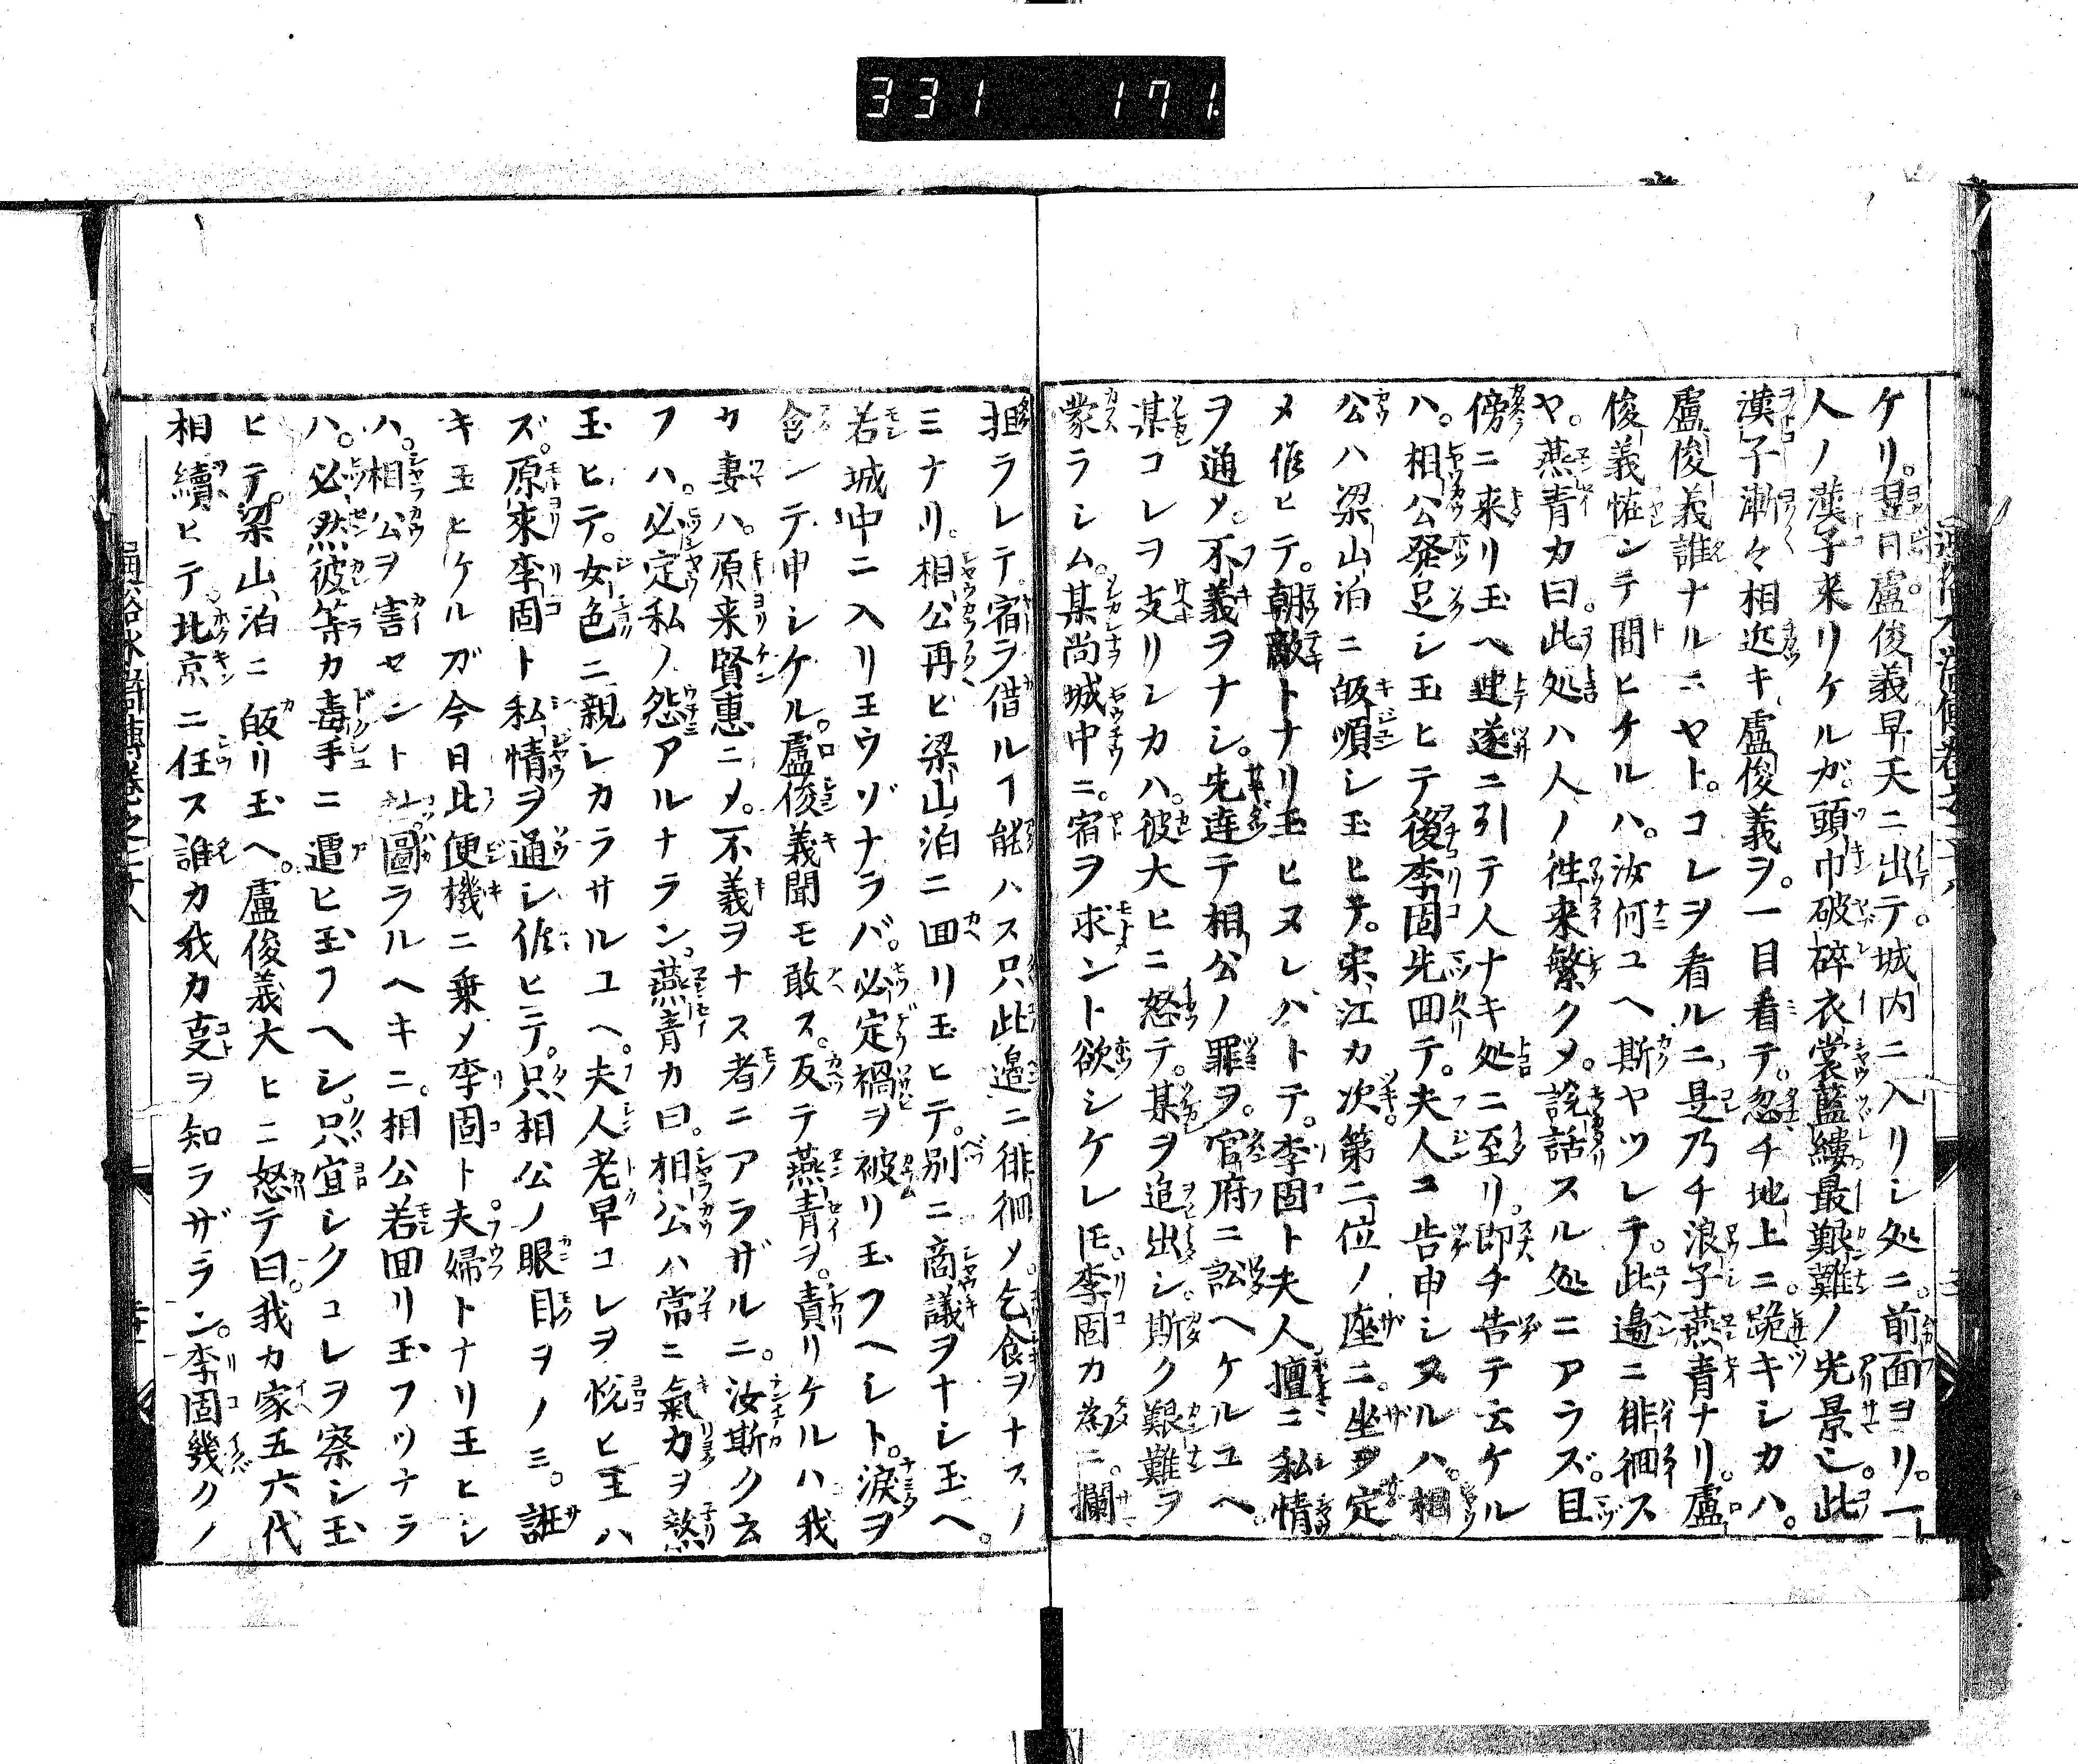 331 171.
ケリ。翌日。盧俊義早天ニ出テ。城内ニ入リシ処ニ。前面ヨリ。一
人ノ漢子来リケルガ。頭巾破碎衣裳藍縷最艱難ノ光景也。此
漢子漸々相近キ。盧俊義ヲ。一目看テ。忽チ地上ニ。跪キシカハ。
盧俊義誰ナルニヤト。コレヲ看ルニ。是乃チ浪子燕青ナリ。盧
俊義恠ンテ問ヒケルハ。汝何ユヘ斯ヤツレテ。此邉ニ徘徊ス
ヤ。燕青カ曰。此処ハ人ノ徃来繁クメ。説話スル処ニアラズ。且
傍ニ来リ玉ヘ迚遂ニ引テ人ナキ処ニ至リ。即チ告テ云ケル
ハ。相公発足シ玉ヒテ後李固先回テ。夫人ニ告申シヌルハ。相
公ハ梁山泊ニ皈順シ玉ヒテ。宋江カ次第二位ノ座ニ。坐ヲ定
メ使ヒテ。朝敵トナリ玉ヒヌレバトテ。李固ト夫人擅ニ私情
ヲ通メ。不義ヲナシ。先達テ相公ノ罪ヲ。官府ニ訟ヘケルユヘ。
某コレヲ支リシカハ。彼大ヒニ怒テ。某ヲ追出シ。斯ク艱難ヲ
蒙ラシム。某尚城中ニ。宿ヲ求ント欲シケレ𪜈。李固カ為ニ。攔
抯ラレテ。宿ヲ借ルヿ能ハス只此邉ニ徘徊メ。乞食ヲナスノ
ミナリ。相公再ビ梁山泊ニ回リ玉ヒテ。別ニ商議ヲナシ玉ヘ。
若城中ニ入リ玉ウゾナラバ。必定禍ヲ被リ玉フヘシト。淚ヲ
含ンテ申シケル。盧俊義聞モ敢ス。反テ燕青ヲ。責リケルハ我
カ妻ハ。原来賢惠ニメ。不義ヲナス者ニアラザルニ。汝斯ク云
フハ。必定私ノ怨アルナラン。燕青カ曰。相公ハ常ニ氣力ヲ煞
玉ヒテ。女色ニ親シカラサルユヘ。夫人老早コレヲ悦ヒ玉ハ
ズ。原來李固ト私情ヲ通シ使ヒテ。只相公ノ眼目ヲノミ。誑
キ玉ヒケルガ今日此便機ニ乗メ李固ト夫婦トナリ玉ヒシ
ハ。相公ヲ害セント圖ラルヘキニ。相公若回リ玉フツナラ
ハ。必然彼等カ毒手ニ遭ヒ玉フヘシ。只宜シクコレヲ察シ玉
ヒテ。梁山泊ニ皈リ玉ヘ。盧俊義大ヒニ怒テ曰。我カ家五六代
相續ヒテ。北京ニ住ス誰カ我カ叓ヲ知ラザラン。李固幾クノ